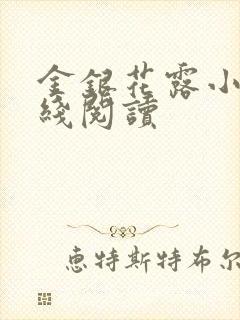 金銀花露小
綫閱讀
恵特斯特布尔